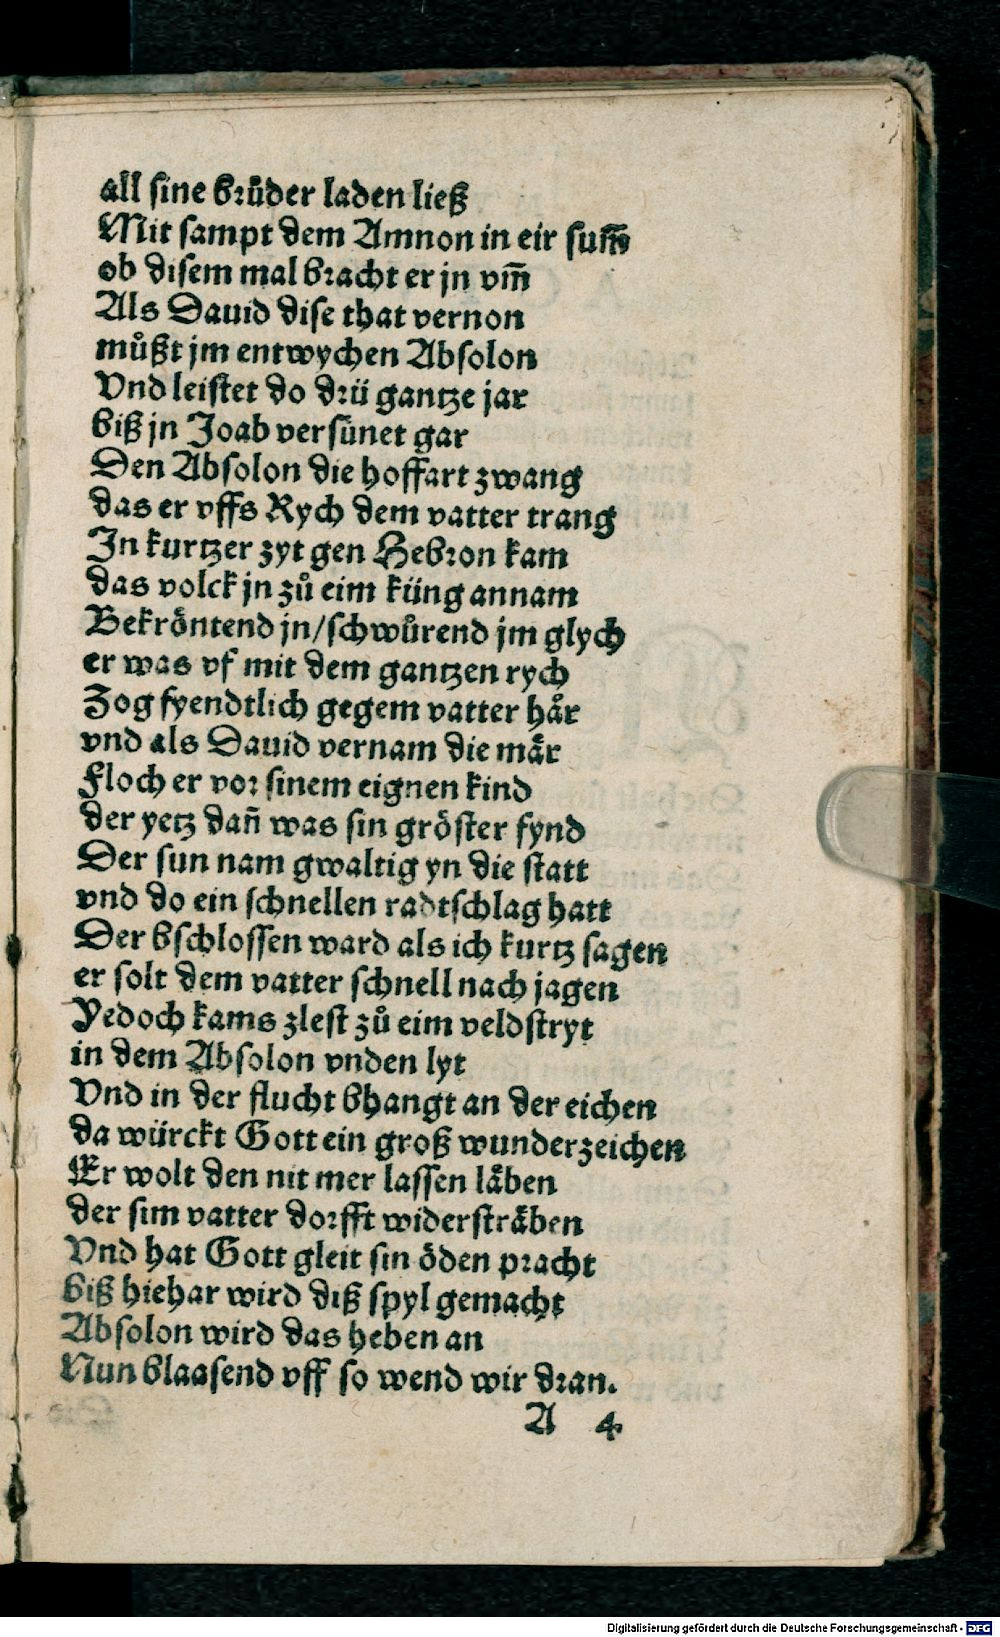 all sine brůder laden ließ
Mit sampt dem Amnon in eir sum̄
ob disem mal bracht er jn vm̄
Als Dauid dise that vernon
můßt jm entwychen Absolon
Vnd leistet do drü gantze jar
biß jn Joab versünet gar
Den Absolon die hoffart zwang
das er vffs Rych dem vatter trang
In kurtzer zyt gen Hebron kam
das volck jn zů eim küng annam
Bekröntend jn/schwůrend jm glych
er was vf mit dem gantzen rych
Zog fyendtlich gegem vatter hår
vnd als Dauid vernam die mår
Floch er vor sinem eignen kind
der yetz dañ was sin gröster fynd
Der sun nam gwaltig yn die statt
vnd do ein schnellen radtschlag hatt
Der bschlossen ward als ich kurtz sagen
er solt dem vatter schnell nach jagen
Yedoch kams zlest zů eim veldstryt
in dem Absolon vnden lyt
Vnd in der flucht bhangt an der eichen
da würckt Gott ein groß wunderzeichen
Er wolt den nit mer lassen låben
der sim vatter dorfft widerstråben
Vnd hat Gott gleit sin öden pracht
biß hiehar wird diß spyl gemacht
Absolon wird das heben an
Nun blaasend vff so wend wir dran.
A 4
Digitalisierung gefördert durch die Deutsche Forschungsgemeinschaft - DFG